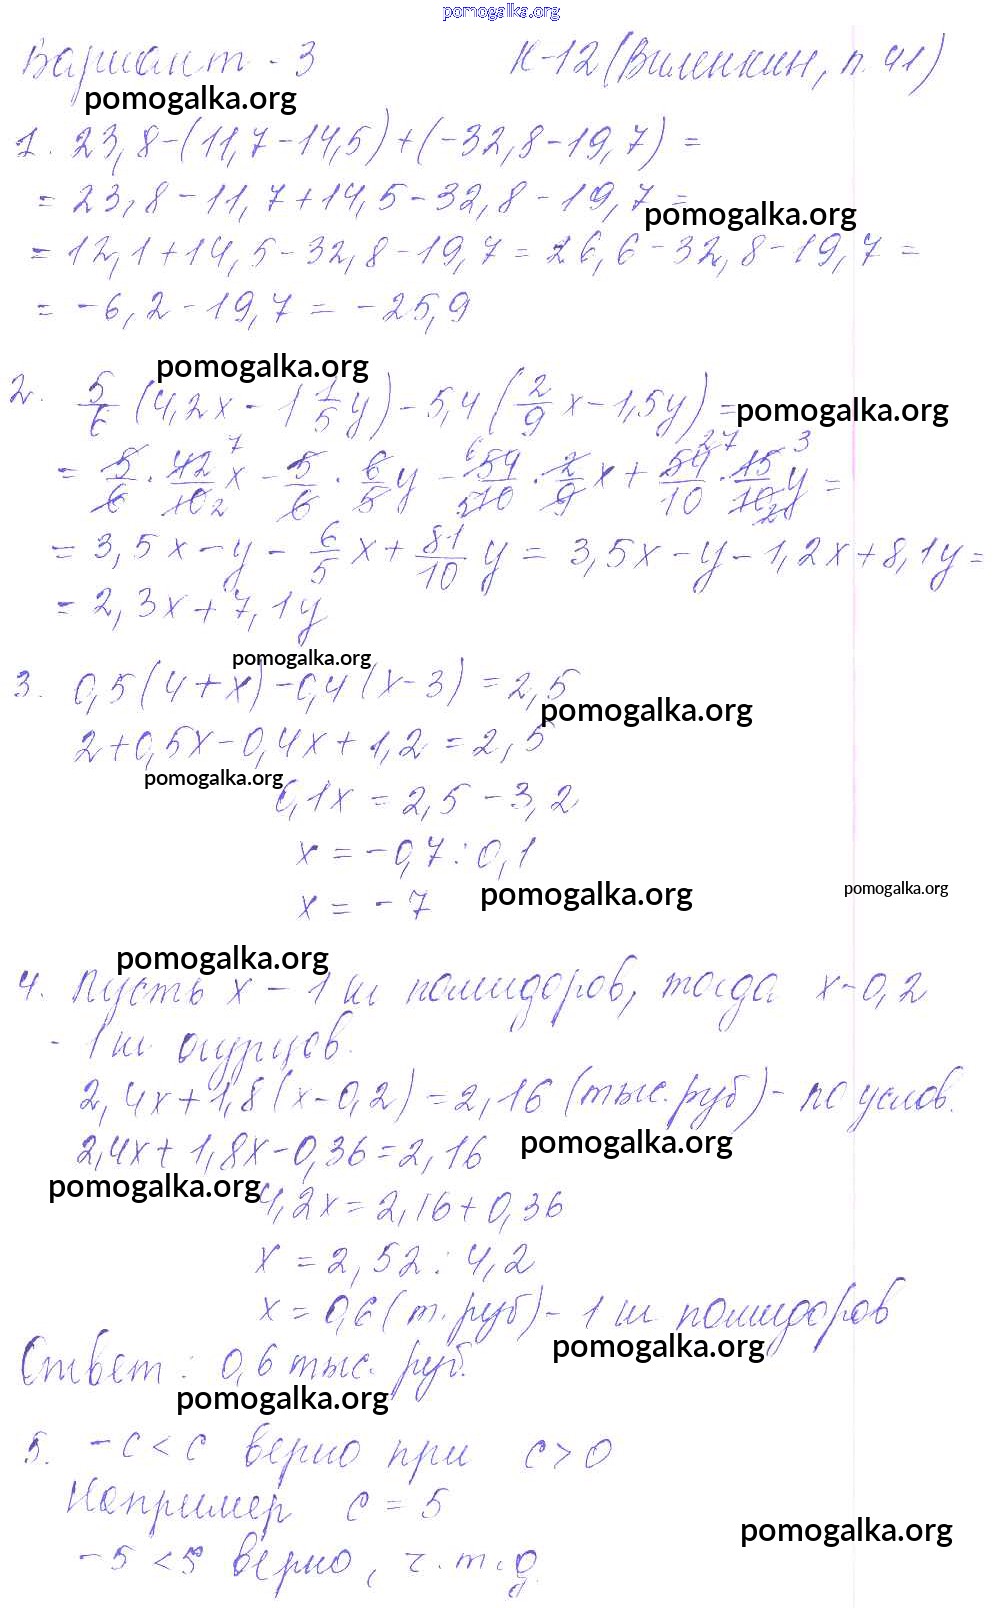 pomogalka.org
Вариант - 3 К-12 (Виленкин, п. 41)
pomogalka.org
1. 23,8-(11,7-14,5)+(-32,8-19,7) =
= 23,8-11,7+14,5-32,8-19,7 =
pomogalka.org
= 12,1+14,5-32,8-19,7 = 26,6-32,8-19,7 =
= -6,2-19,7 = -25,9
pomogalka.org
2. 5/6 (4,2x - 1 1/5 y) - 5,4 (2/9 x - 1,5y) =
pomogalka.org
= 5/6 · 42/10 x - 5/6 · 6/5 y - 54/10 · 2/9 x + 54/10 · 15/10 y =
= 3,5x - y - 6/5 x + 81/10 y = 3,5x - y - 1,2x + 8,1y =
= 2,3x + 7,1y
pomogalka.org
3. 0,5(4+x)-0,4(x-3) = 2,5
pomogalka.org
2+0,5x-0,4x+1,2 = 2,5
pomogalka.org
0,1x = 2,5-3,2
x = -0,7 : 0,1
x = -7
pomogalka.org
pomogalka.org
pomogalka.org
4. Пусть x - 1 ш помидоров, тогда x-0,2
- 1 ш огурцов.
2,4x+1,8(x-0,2)=2,16 (тыс. руб) - по услов.
2,4x+1,8x-0,36=2,16
pomogalka.org
pomogalka.org
4,2x=2,16+0,36
x = 2,52 : 4,2
x = 0,6 (т. руб) - 1 ш помидоров
pomogalka.org
Ответ: 0,6 тыс. руб.
pomogalka.org
5. -c < c верно при c > 0
Например c = 5
pomogalka.org
-5 < 5 верно, ч.т.д.